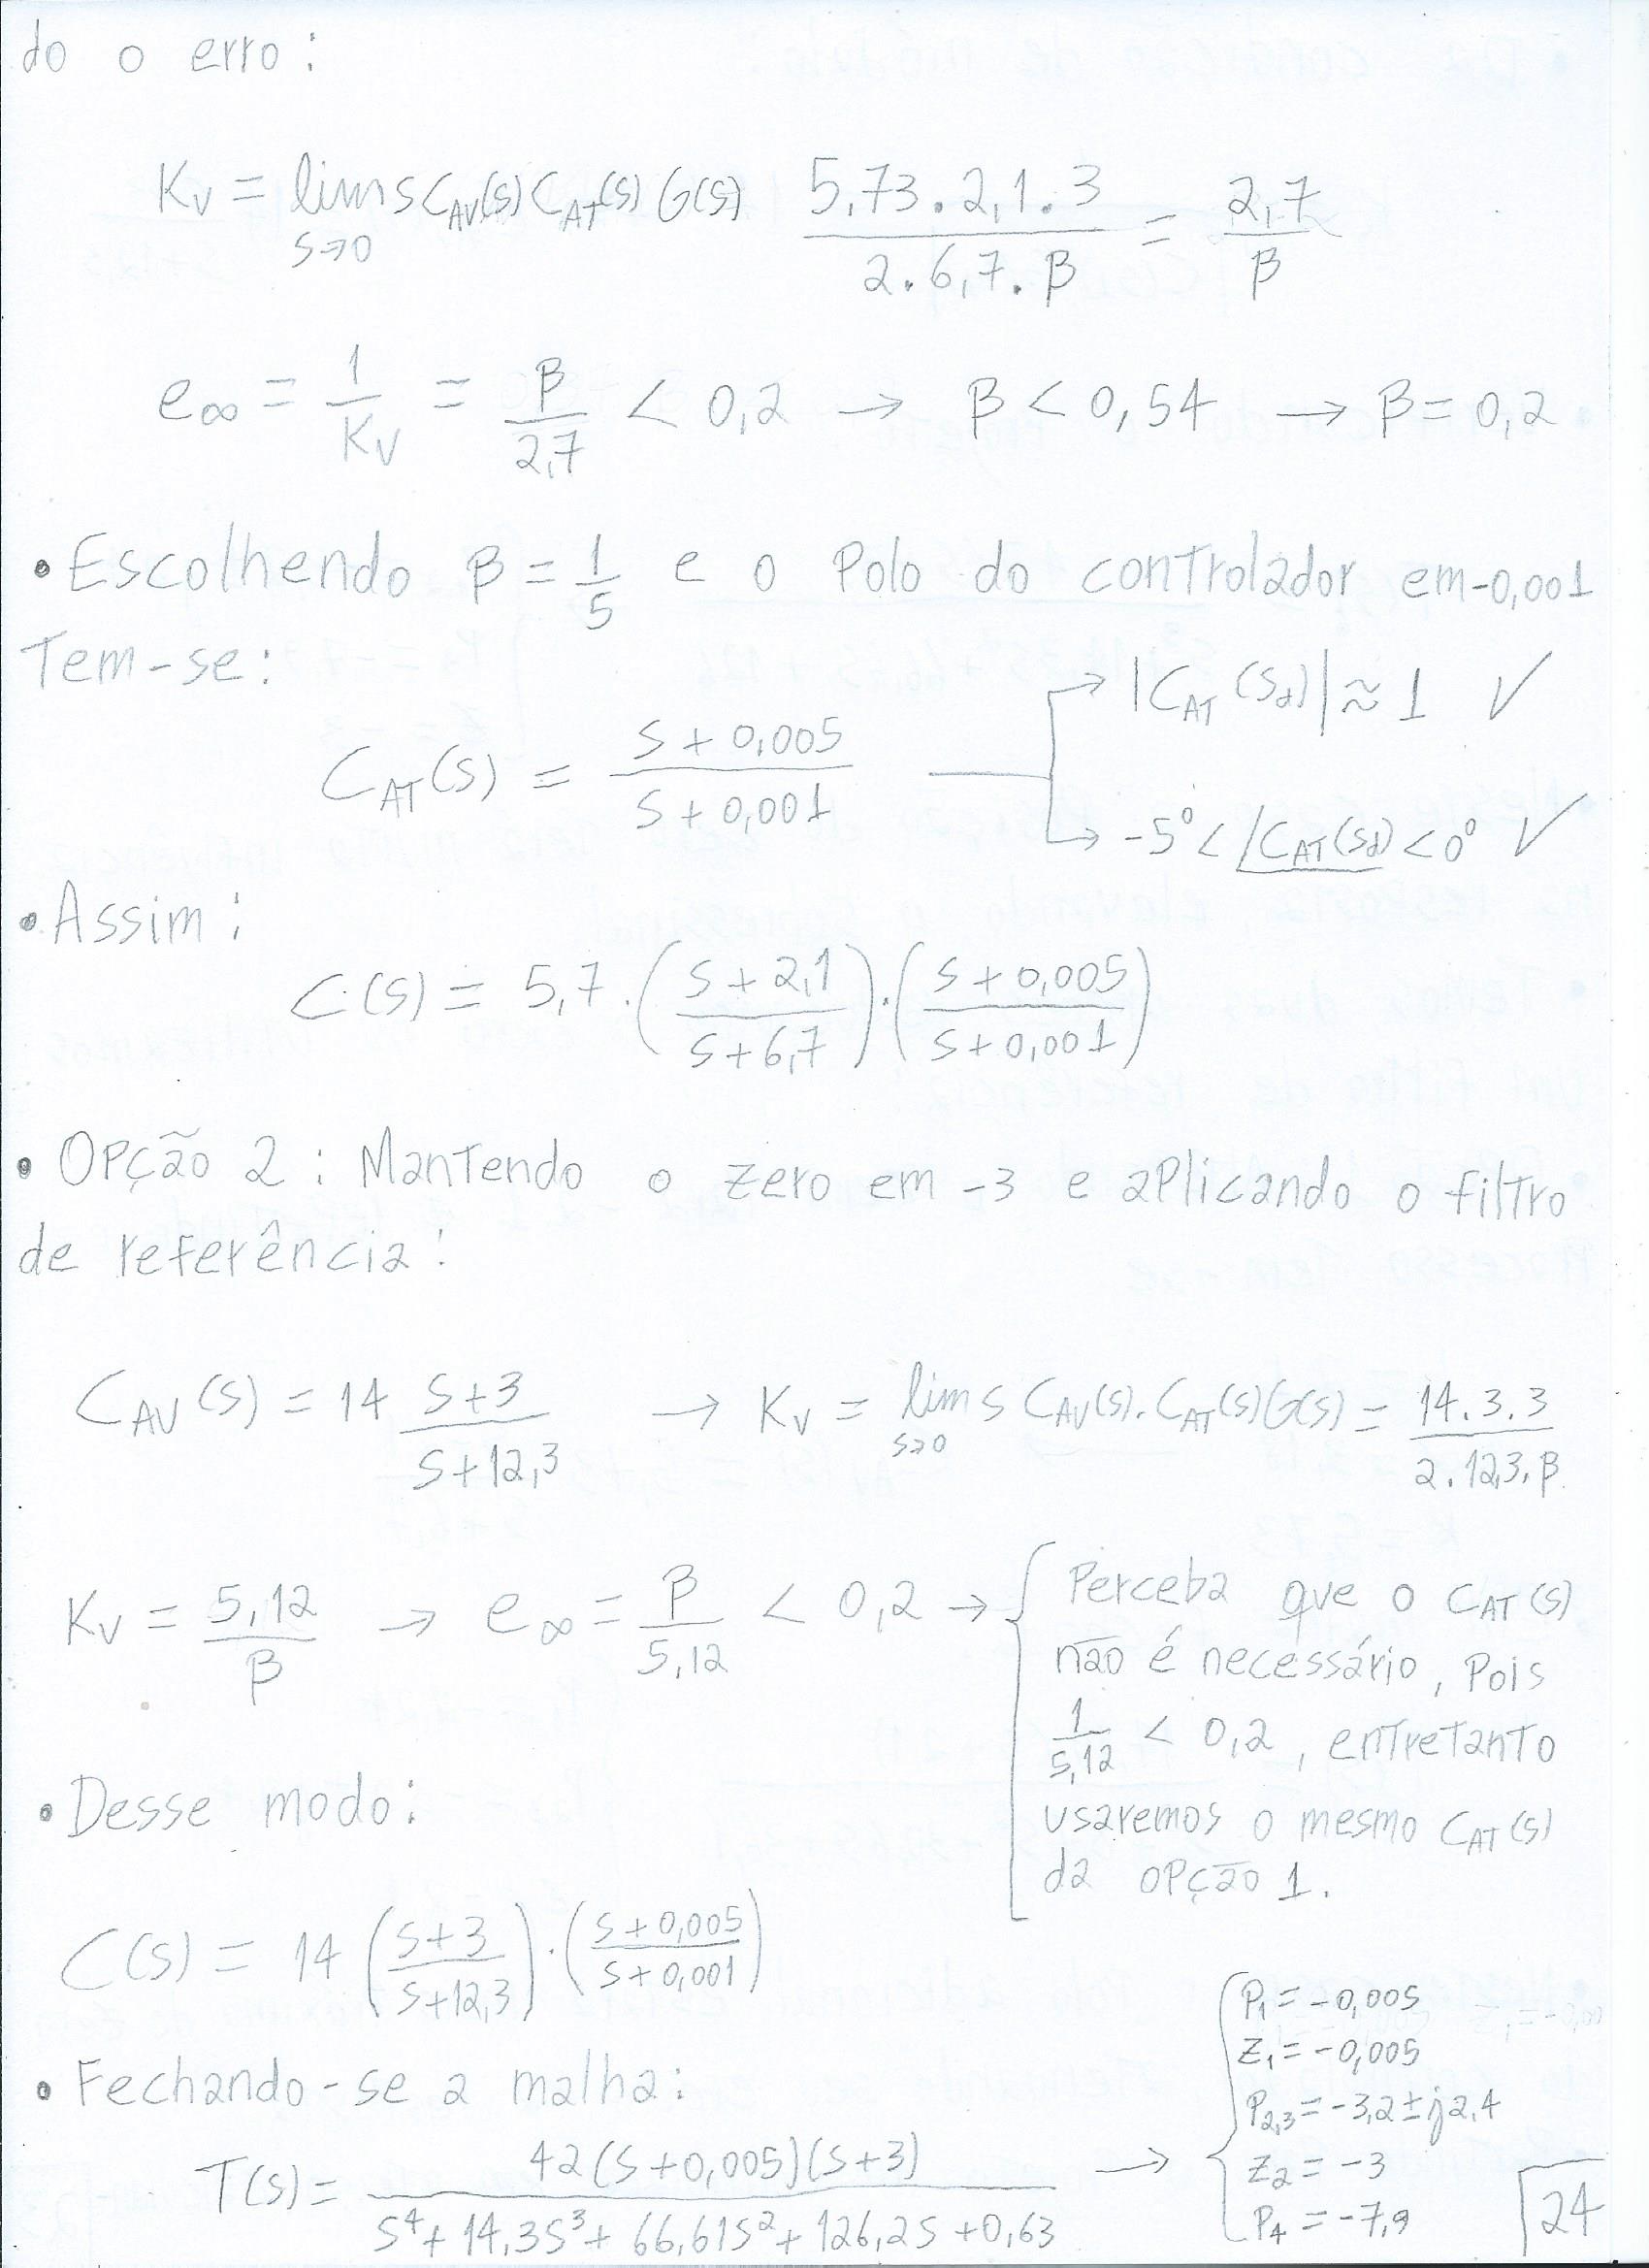 do o erro:
Kv = lim s→0 s CAV(s) CAT(s) G(s) 5,73.2,1.3 / 2.6,7.β = 2,7 / β
e∞ = 1/Kv = β/2,7 < 0,2 → β < 0,54 → β = 0,2
• Escolhendo β = 1/5 e o polo do controlador em -0,001
Tem-se:
CAT(s) = s + 0,005 / s + 0,001
→ |CAT(sd)| ≈ 1 ✓
→ -5° < ∠CAT(sd) < 0° ✓
• Assim:
C(s) = 5,7 . (s + 2,1 / s + 6,7) . (s + 0,005 / s + 0,001)
• Opção 2: Mantendo o zero em -3 e aplicando o filtro
de referência:
CAV(s) = 14 s+3 / s+12,3 → Kv = lim s→0 s CAV(s). CAT(s) G(s) = 14.3.3 / 2.12,3.β
Kv = 5,12 / β → e∞ = β / 5,12 < 0,2 →
Perceba que o CAT(s)
não é necessário, pois
1/5,12 < 0,2, entretanto
usaremos o mesmo CAT(s)
da opção 1.
• Desse modo:
C(s) = 14 (s+3 / s+12,3) . (s+0,005 / s+0,001)
• Fechando-se a malha:
T(s) = 42(s+0,005)(s+3) / s⁴ + 14,3s³ + 66,61s² + 126,2s + 0,63 →
P1 = -0,005
Z1 = -0,005
P2,3 = -3,2 ± j2,4
Z2 = -3
P4 = -7,9
24